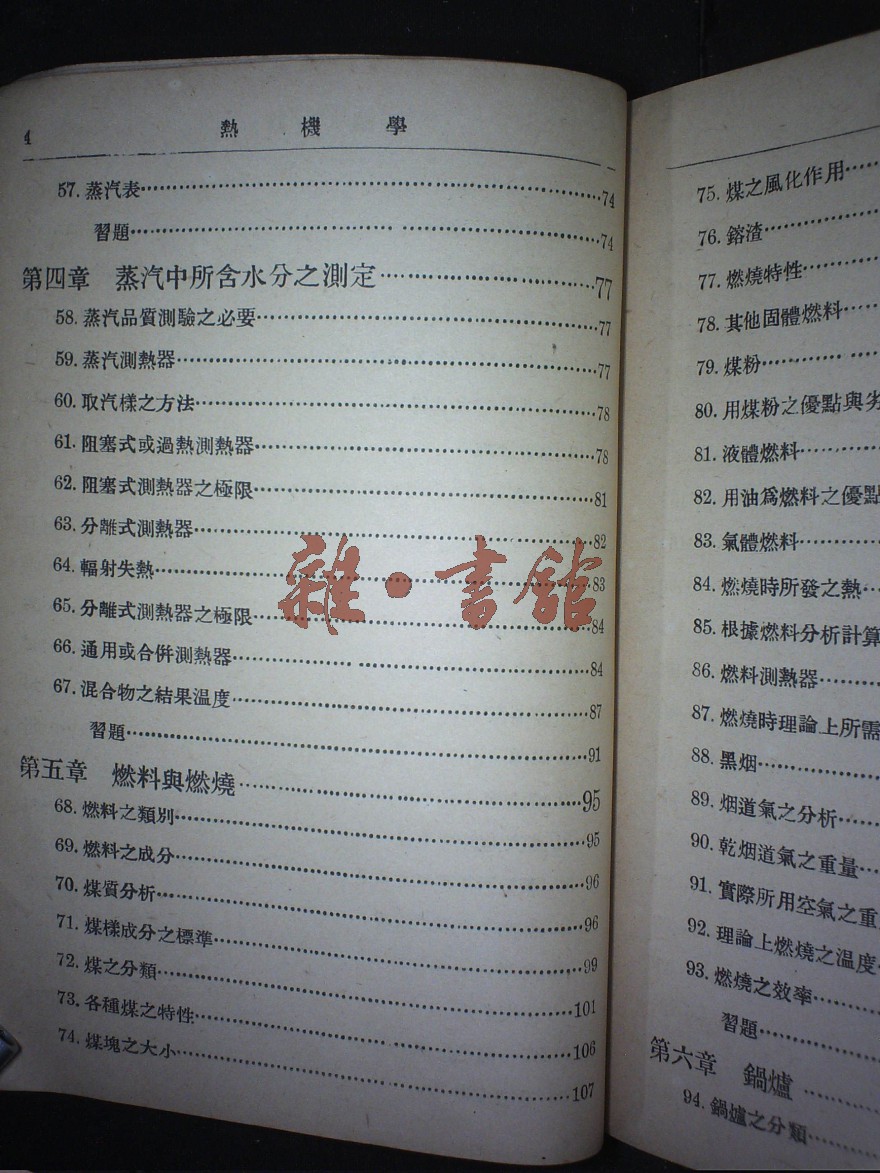 4 熱機學
57. 蒸汽表 74
習題 74
第四章 蒸汽中所含水分之測定 77
58. 蒸汽品質測驗之必要 77
59. 蒸汽測熱器 77
60. 取汽樣之方法 78
61. 阻塞式或過熱測熱器 78
62. 阻塞式測熱器之極限 81
63. 分離式測熱器 82
64. 輻射失熱 83
65. 分離式測熱器之極限 84
66. 通用或合併測熱器 84
67. 混合物之結果温度 87
習題 91
第五章 燃料與燃燒 95
68. 燃料之類別 95
69. 燃料之成分 96
70. 煤質分析 96
71. 煤樣成分之標準 99
72. 煤之分類 101
73. 各種煤之特性 106
74. 煤塊之大小 107
雜·書館
75. 煤之風化作用
76. 鎔渣
77. 燃燒特性
78. 其他固體燃料
79. 煤粉
80. 用煤粉之優點與劣
81. 液體燃料
82. 用油爲燃料之優點
83. 氣體燃料
84. 燃燒時所發之熱
85. 根據燃料分析計算
86. 燃料測熱器
87. 燃燒時理論上所需
88. 黑烟
89. 烟道氣之分析
90. 乾烟道氣之重量
91. 實際所用空氣之重
92. 理論上燃燒之温度
93. 燃燒之效率
習題
第六章 鍋爐
94. 鍋爐之分類